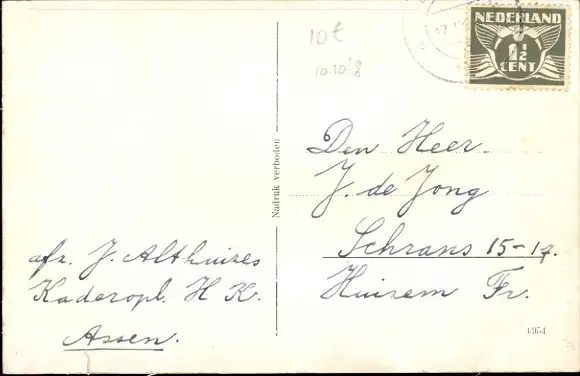 10 €
10-10'18
17
NEDERLAND
1½
CENT
Nadruk verboden
Den Heer.
J. de Jong
Schrans 15-17.
Huizem Fr.
afz. J. Althuizes
Kaderopl. H K.
Assen.